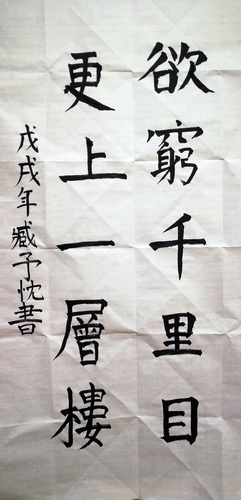 欲窮千里目
更上一層樓
戊戌年臧予忱書